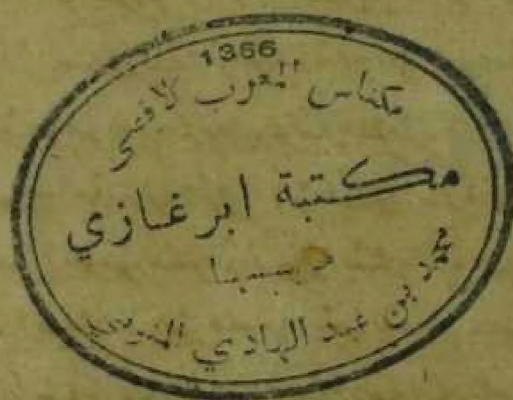 1366
مكناس المغرب الاقصى
مكتبة ابن غازي
محمد بن عبد الهادي المنوني